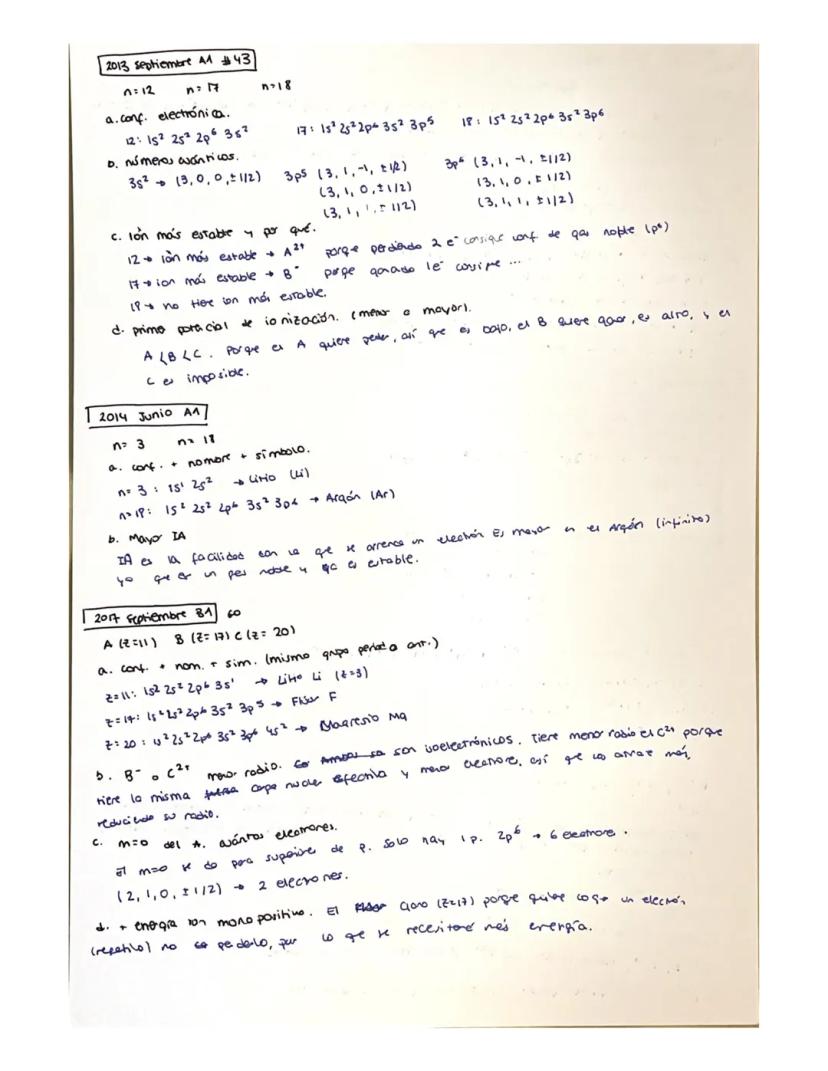 2013 Septiembre A1 #43
n=12 n=17 n=18
a. conf. electrónica.
12: 1s² 2s² 2p⁶ 3s² 17: 1s² 2s² 2p⁶ 3s² 3p⁵ 18: 1s² 2s² 2p⁶ 3s² 3p⁶
b. números cuánticos.
3s² → (3, 0, 0, ±1/2) 3p⁵ (3, 1, -1, ±1/2) 3p⁶ (3, 1, -1, ±1/2)
(3, 1, 0, ±1/2) (3, 1, 0, ±1/2)
(3, 1, 1, ±1/2) (3, 1, 1, ±1/2)
c. Ión más estable y por qué.
12 → ión más estable → A²⁺ porque perdiendo 2 e⁻ consigue conf de gas noble (p⁶)
17 → ion más estable → B⁻ porqe ganando 1e⁻ consigue ...
18 → no tiene ion más estable.
d. primo potencial de ionización. (menor a mayor).
A < B < C. Porque el A quiere perder, así que es bajo, el B quiere ganar, es alto, y el
C es imposible.
2014 Junio A1
n= 3 n= 18
a. conf. + nombre + símbolo.
n= 3 : 1s¹ 2s² → Litio (Li)
n=18: 1s² 2s² 2p⁶ 3s² 3p⁶ → Argón (Ar)
b. Mayor IA
IA es la facilidad con la que se arranca un electrón. Es mayor en el Argón (infinito)
ya que es un gas noble y ya es estable.
2017 Septiembre B1 60
A (Z=11) B (Z=17) C (Z= 20)
a. conf. + nom. + sim. (mismo grupo periodo ant.)
Z=11: 1s² 2s² 2p⁶ 3s¹ → Litio Li (Z=3)
Z=17: 1s² 2s² 2p⁶ 3s² 3p⁵ → Flúor F
Z= 20 : 1s² 2s² 2p⁶ 3s² 3p⁶ 4s² → Magnesio Mg
b. B⁻ o C²⁺ menor radio. son isoelectrónicos. Tiene menor radio el C²⁺ porque
tiene la misma carga nuclear efectiva y menos electrones, así que los atrae más,
reduciendo su radio.
c. m=0 del A. cuántos electrones.
El m=0 se da para superiores de p. Solo hay 1 p. 2p⁶ → 6 electrones.
(2, 1, 0, ±1/2) → 2 electrones.
d. + energía ion monopositivo. El Cloro (Z=17) porqe quiere coger un electrón,
(repetilo) no perderlo, por lo que se necesitará más energía.